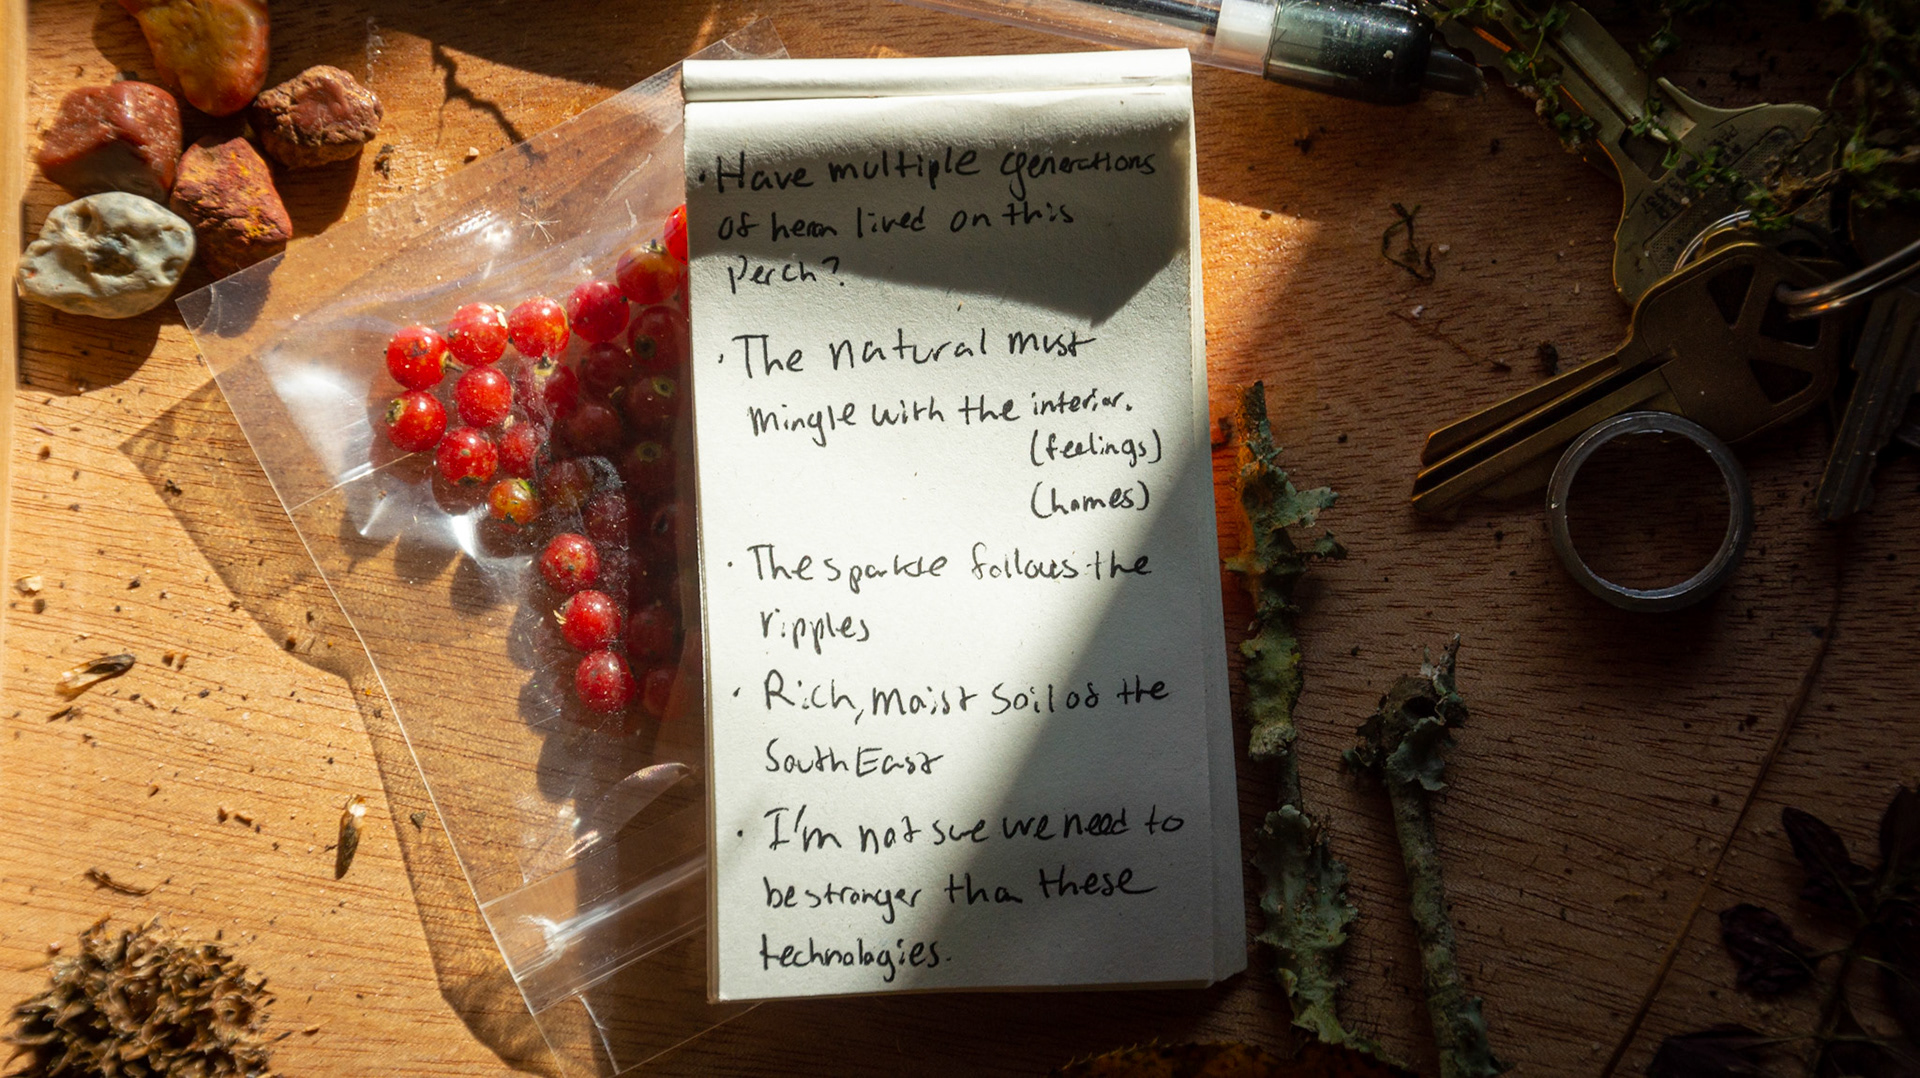 · Have multiple generations
of heron lived on this
perch?
· The natural must
mingle with the interior.
(feelings)
(homes)
· The sparkle follows the
ripples
· Rich, moist soil of the
South East
· I'm not sure we need to
be stronger than these
technologies.